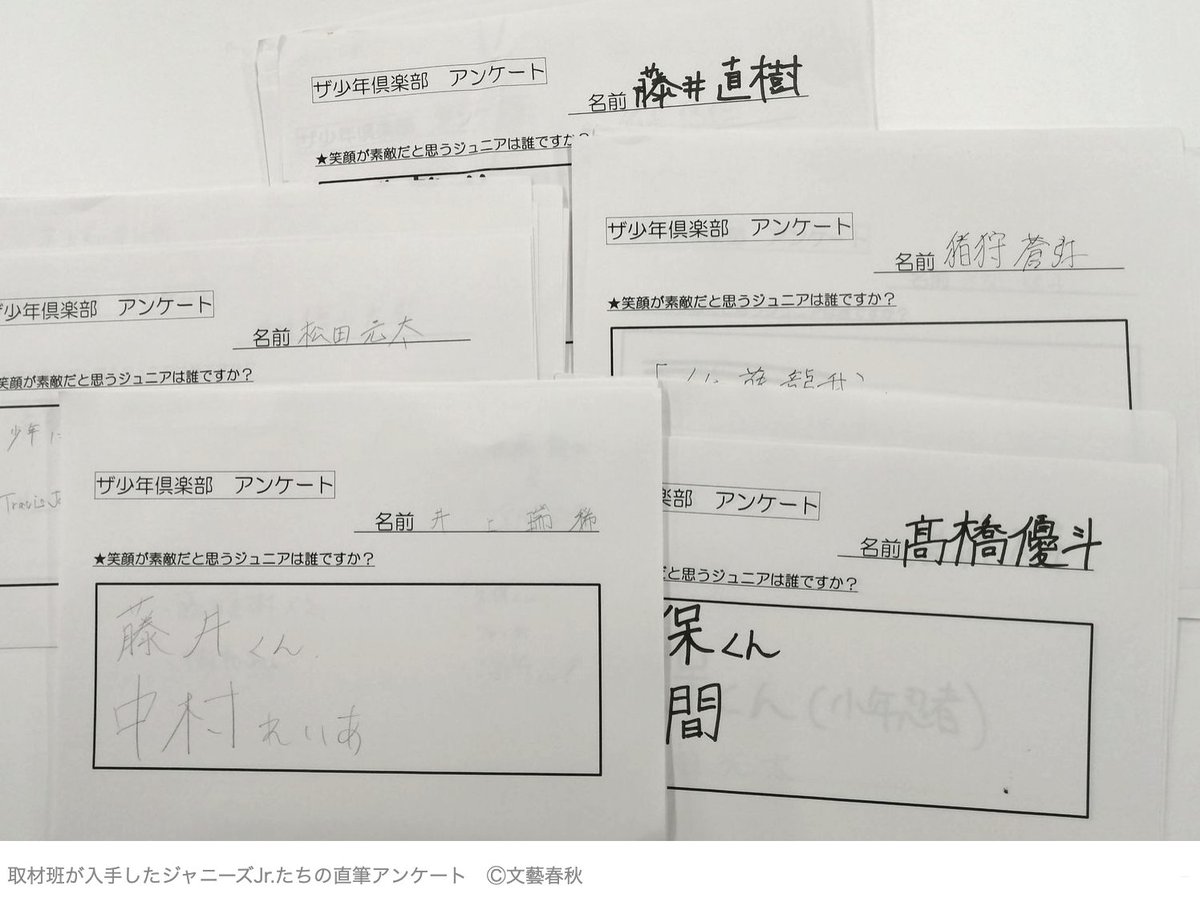 ザ少年倶楽部 アンケート
名前 藤井直樹
★笑顔が素敵だと思うジュニアは誰ですか?
ザ少年倶楽部 アンケート
名前 猪狩蒼弥
★笑顔が素敵だと思うジュニアは誰ですか?
ザ少年倶楽部 アンケート
名前 松田元太
笑顔が素敵だと思うジュニアは誰ですか?
少年
Travis J
ザ少年倶楽部 アンケート
名前 井上瑞稀
★笑顔が素敵だと思うジュニアは誰ですか?
藤井くん
中村れいあ
楽部 アンケート
名前 髙橋優斗
だと思うジュニアは誰ですか?
保くん
間
取材班が入手したジャニーズJr.たちの直筆アンケート Ⓒ文藝春秋